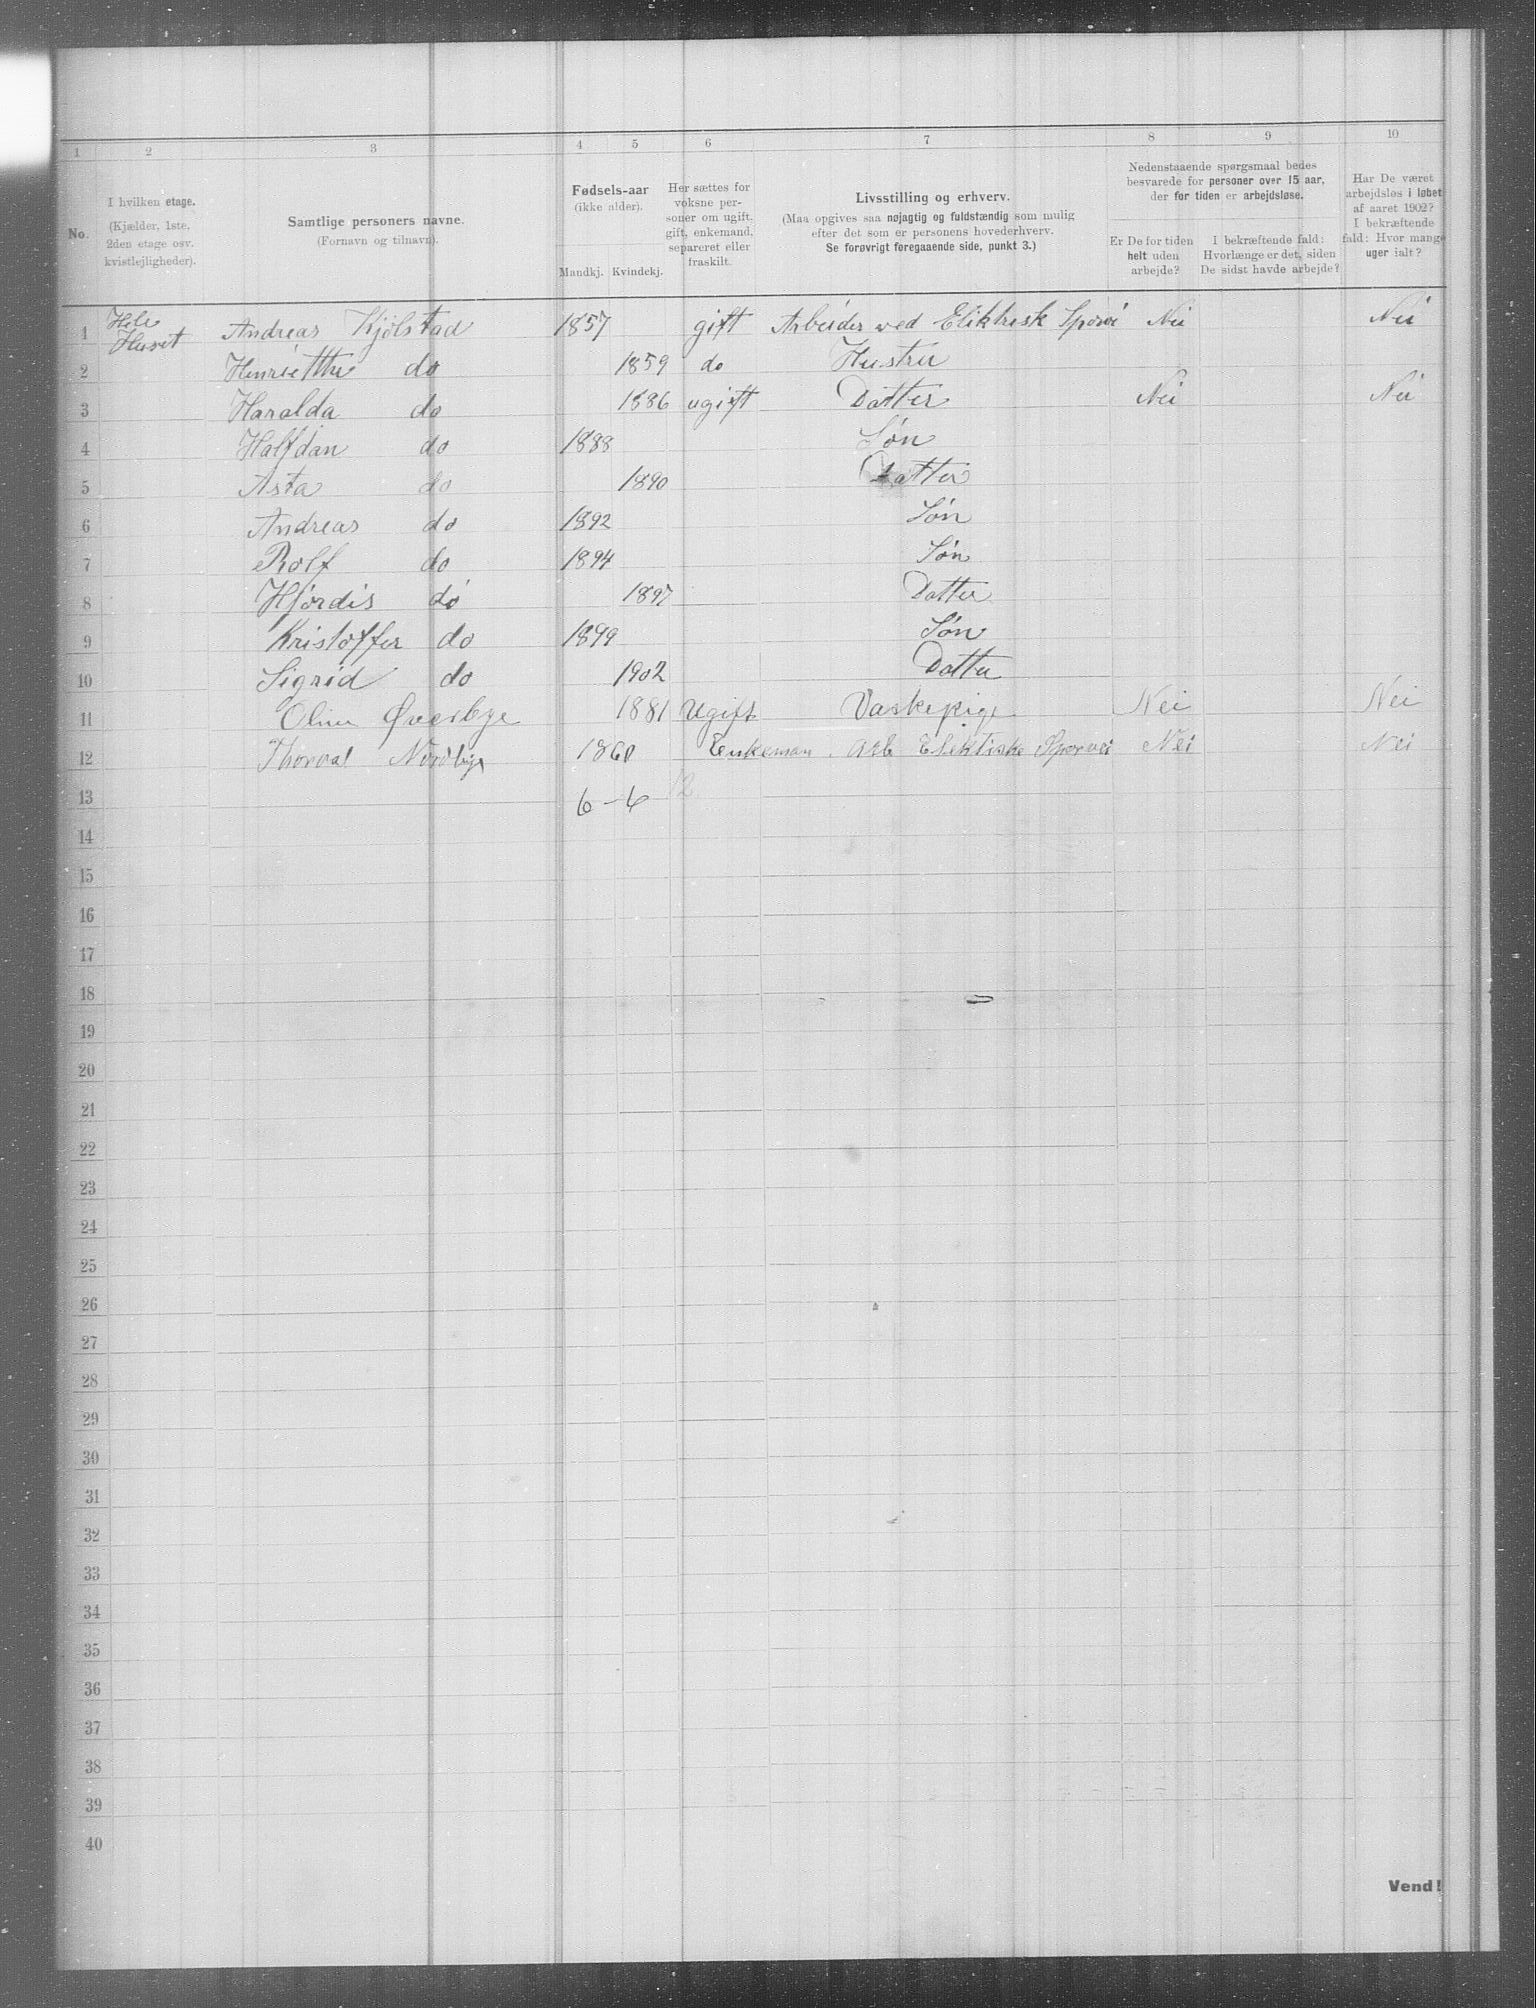 1 2 3 4 5 6 7 8 9 10
No.
I hvilken etage.
(Kjælder, 1ste.
2den etage osv.
kvistlejligheder).
Samtlige personers navne.
(Fornavn og tilnavn).
Fødsels-aar
(ikke alder).
Mandkj. Kvindekj.
Her sættes for
voksne per-
soner om ugift,
gift, enkemand,
separeret eller
fraskilt.
Livsstilling og erhverv.
(Maa opgives saa nøjagtig og fuldstændig som mulig
efter det som er personens hovederhverv.
Se forøvrigt foregaaende side, punkt 3.)
Nedenstaaende spørgsmaal bedes
besvarede for personer over 15 aar,
der for tiden er arbejdsløse.
Er De for tiden
helt uden
arbejde?
I bekræftende fald:
Hvorlænge er det, siden
De sidst havde arbejde?
Har De været
arbejdsløs i løbet
af aaret 1902?
I bekræftende
fald: Hvor mange
uger ialt?
1 Hele Huset Andreas Kjølstad 1857 gift Arbeider ved Elektrisk Sporvei Nei Nei
2 Henriette do 1859 do Hustru
3 Haralda do 1886 ugift Datter Nei Nei
4 Halfdan do 1888 Søn
5 Asta do 1890 Datter
6 Andreas do 1892 Søn
7 Rolf do 1894 Søn
8 Hjørdis do 1897 Datter
9 Kristoffer do 1899 Søn
10 Sigrid do 1902 Datter
11 Oline Øverbye 1881 Ugift Vaskepige Nei Nei
12 Thorval Nordbye 1860 Enkeman Arb Elektiske Sporvei Nei Nei
13 6-6 12
14
15
16
17
18
19
20
21
22
23
24
25
26
27
28
29
30
31
32
33
34
35
36
37
38
39
40
Vend!